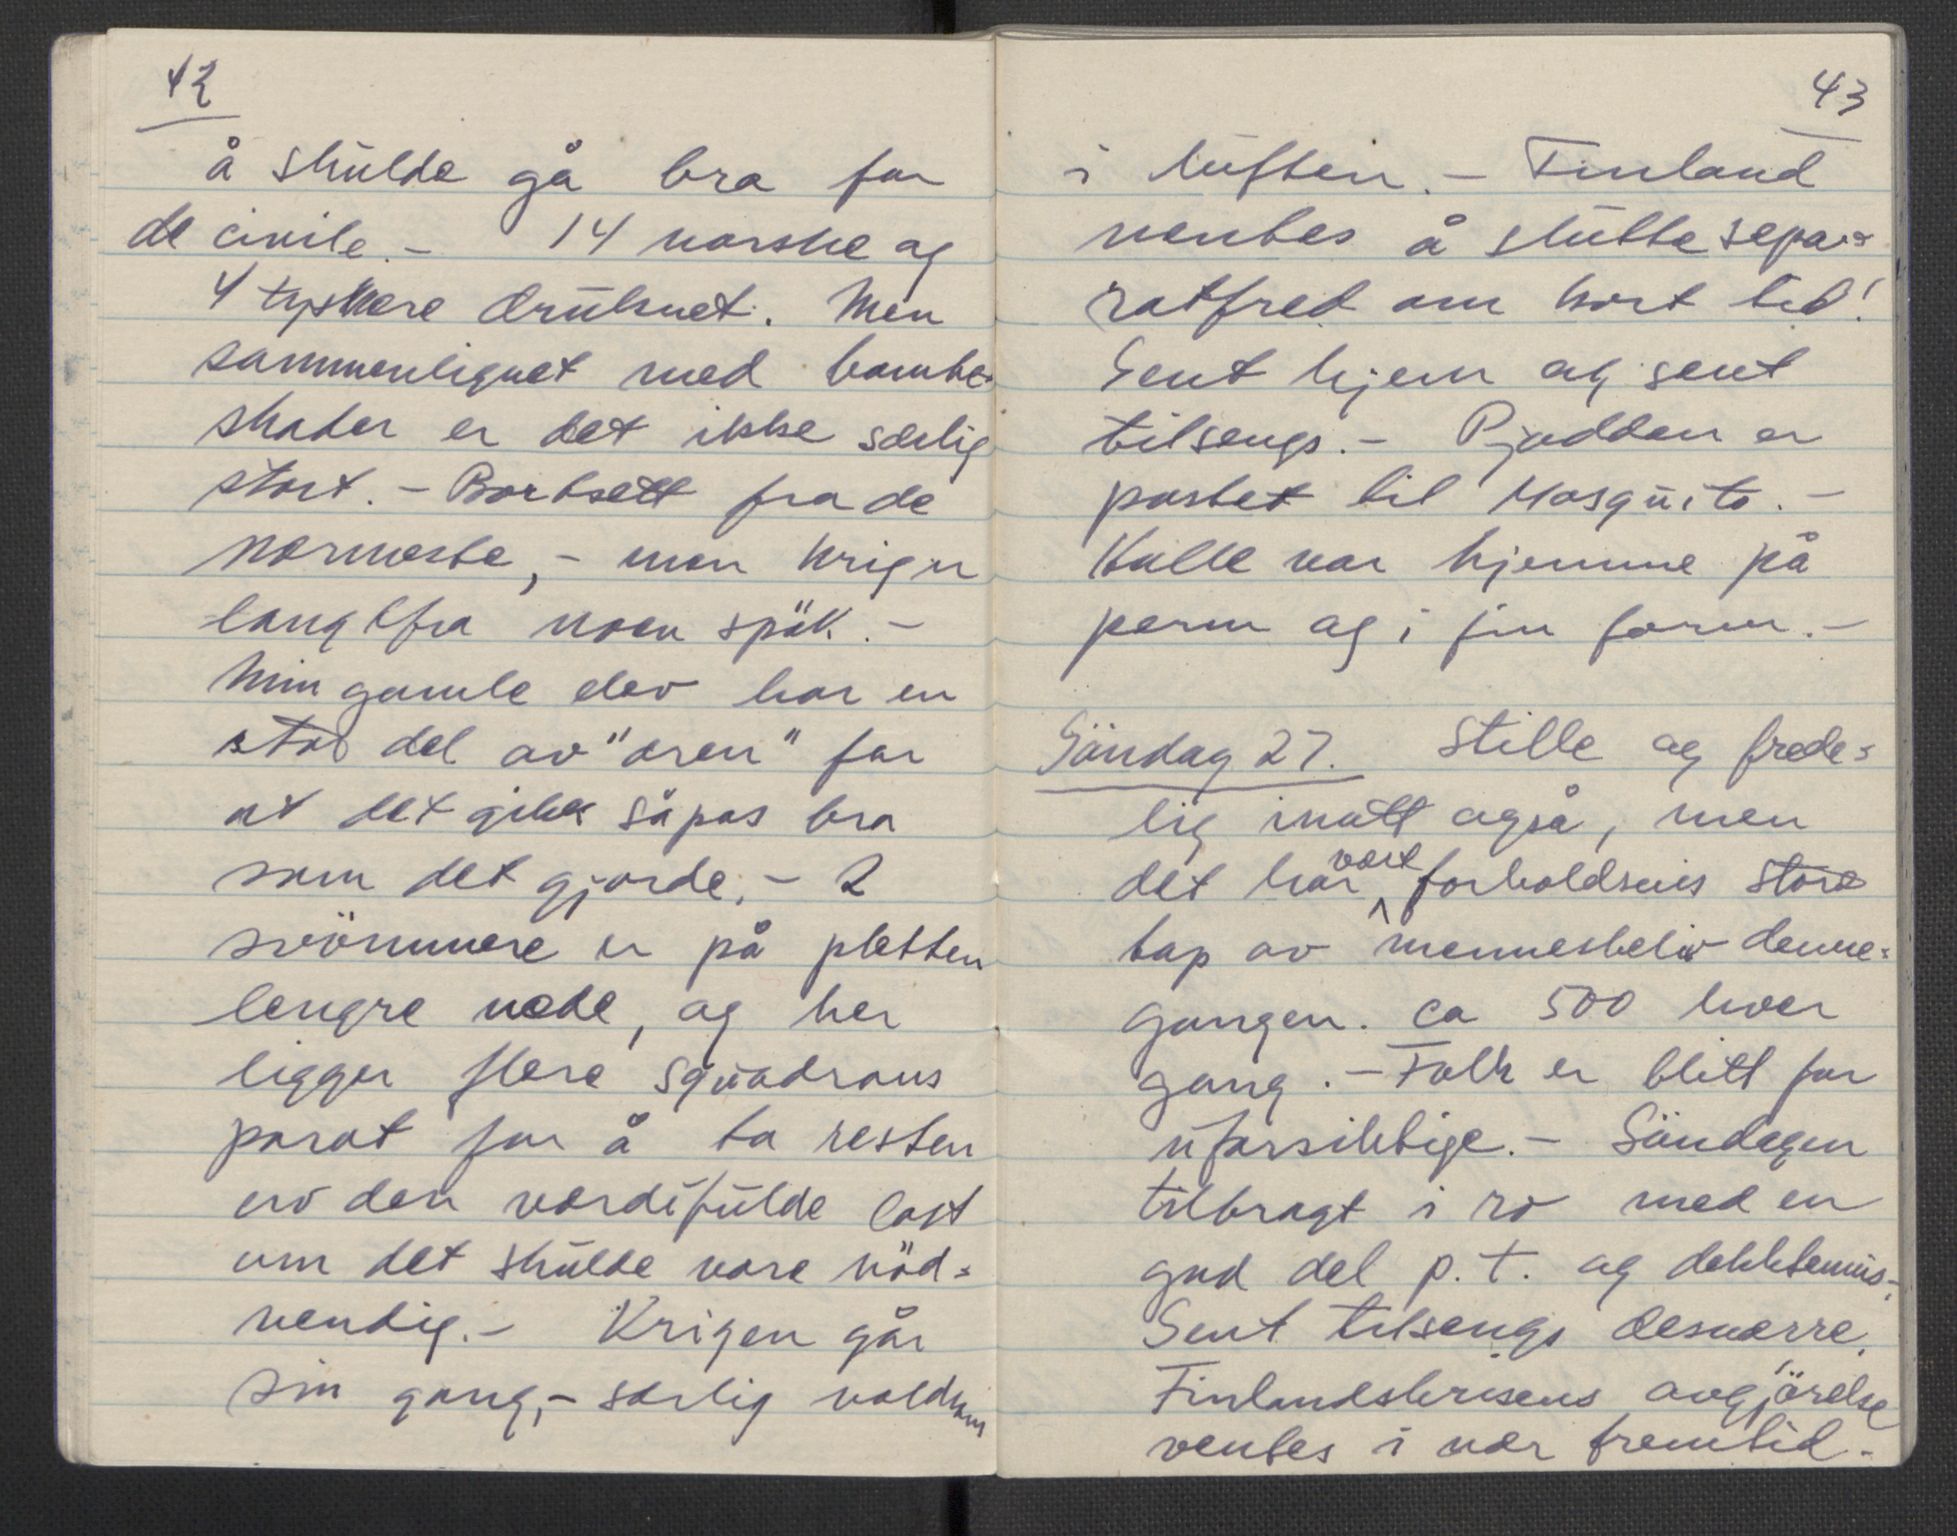 42
å skulde gå bra for
de civile. – 14 norske og
4 tyskere druknet. Men
sammenlignet med bombe-
skader er det ikke særlig
stort. – Bortsett fra de
nærmeste, – men krig er
langtfra noen spök. –
Min gamle elev har en
stor del av "æren" for
at det gikk såpas bra
som det gjorde. – 2
svömmere er på pletten
lengre nede, og her
ligger flere squadrons
parat for å ta resten
av den værdifulde last
om det skulde være nöd=
vendig. – Krigen går
sin gang, – særlig voldsom
43
i luften. – Finland
ventes å slutte sepa=
ratfred om kort tid!
Sent hjem og sent
tilsengs. – Pjadden er
postet til Mosquito. –
Kalle var hjemme på
perm og i fin form. –
Söndag 27. Stille og frede=
lig inatt også, men
det har vært forholdsvis store
tap av menneskeliv denne=
gangen. ca 500 hver
gang. – Folk er blitt for
uforsiktige. – Söndagen
tilbragt i ro med en
god del p.t. og dekktennis. –
Sent tilsengs desværre.
Finlandskrisens avgjörelse
ventes i nær fremtid. –